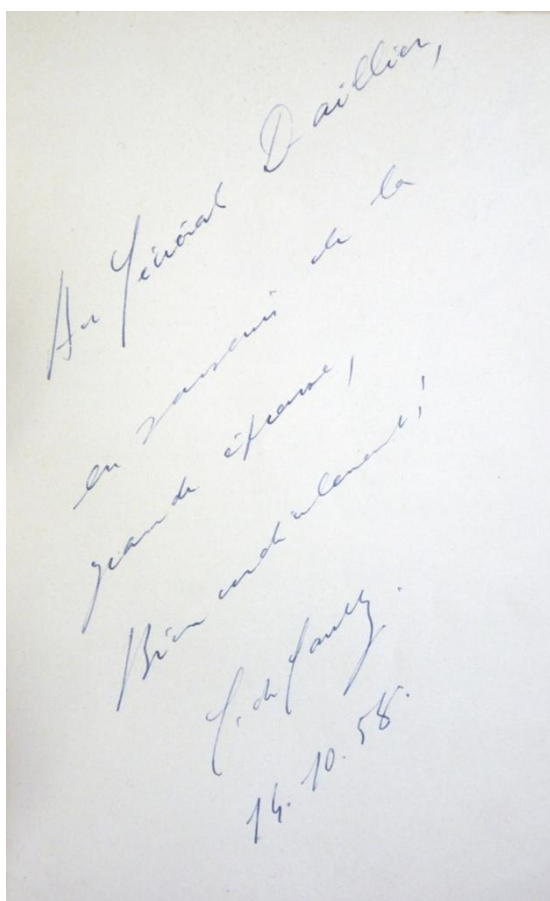 Au Général Daillier,
en souvenir de la
grande épreuve,
Bien cordialement !
C. de Gaulle.
14.10.58.